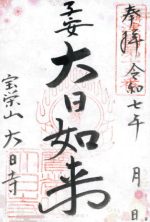 奉拝 令和七年 月 日
子安
大日如来
宝栄山 大日寺